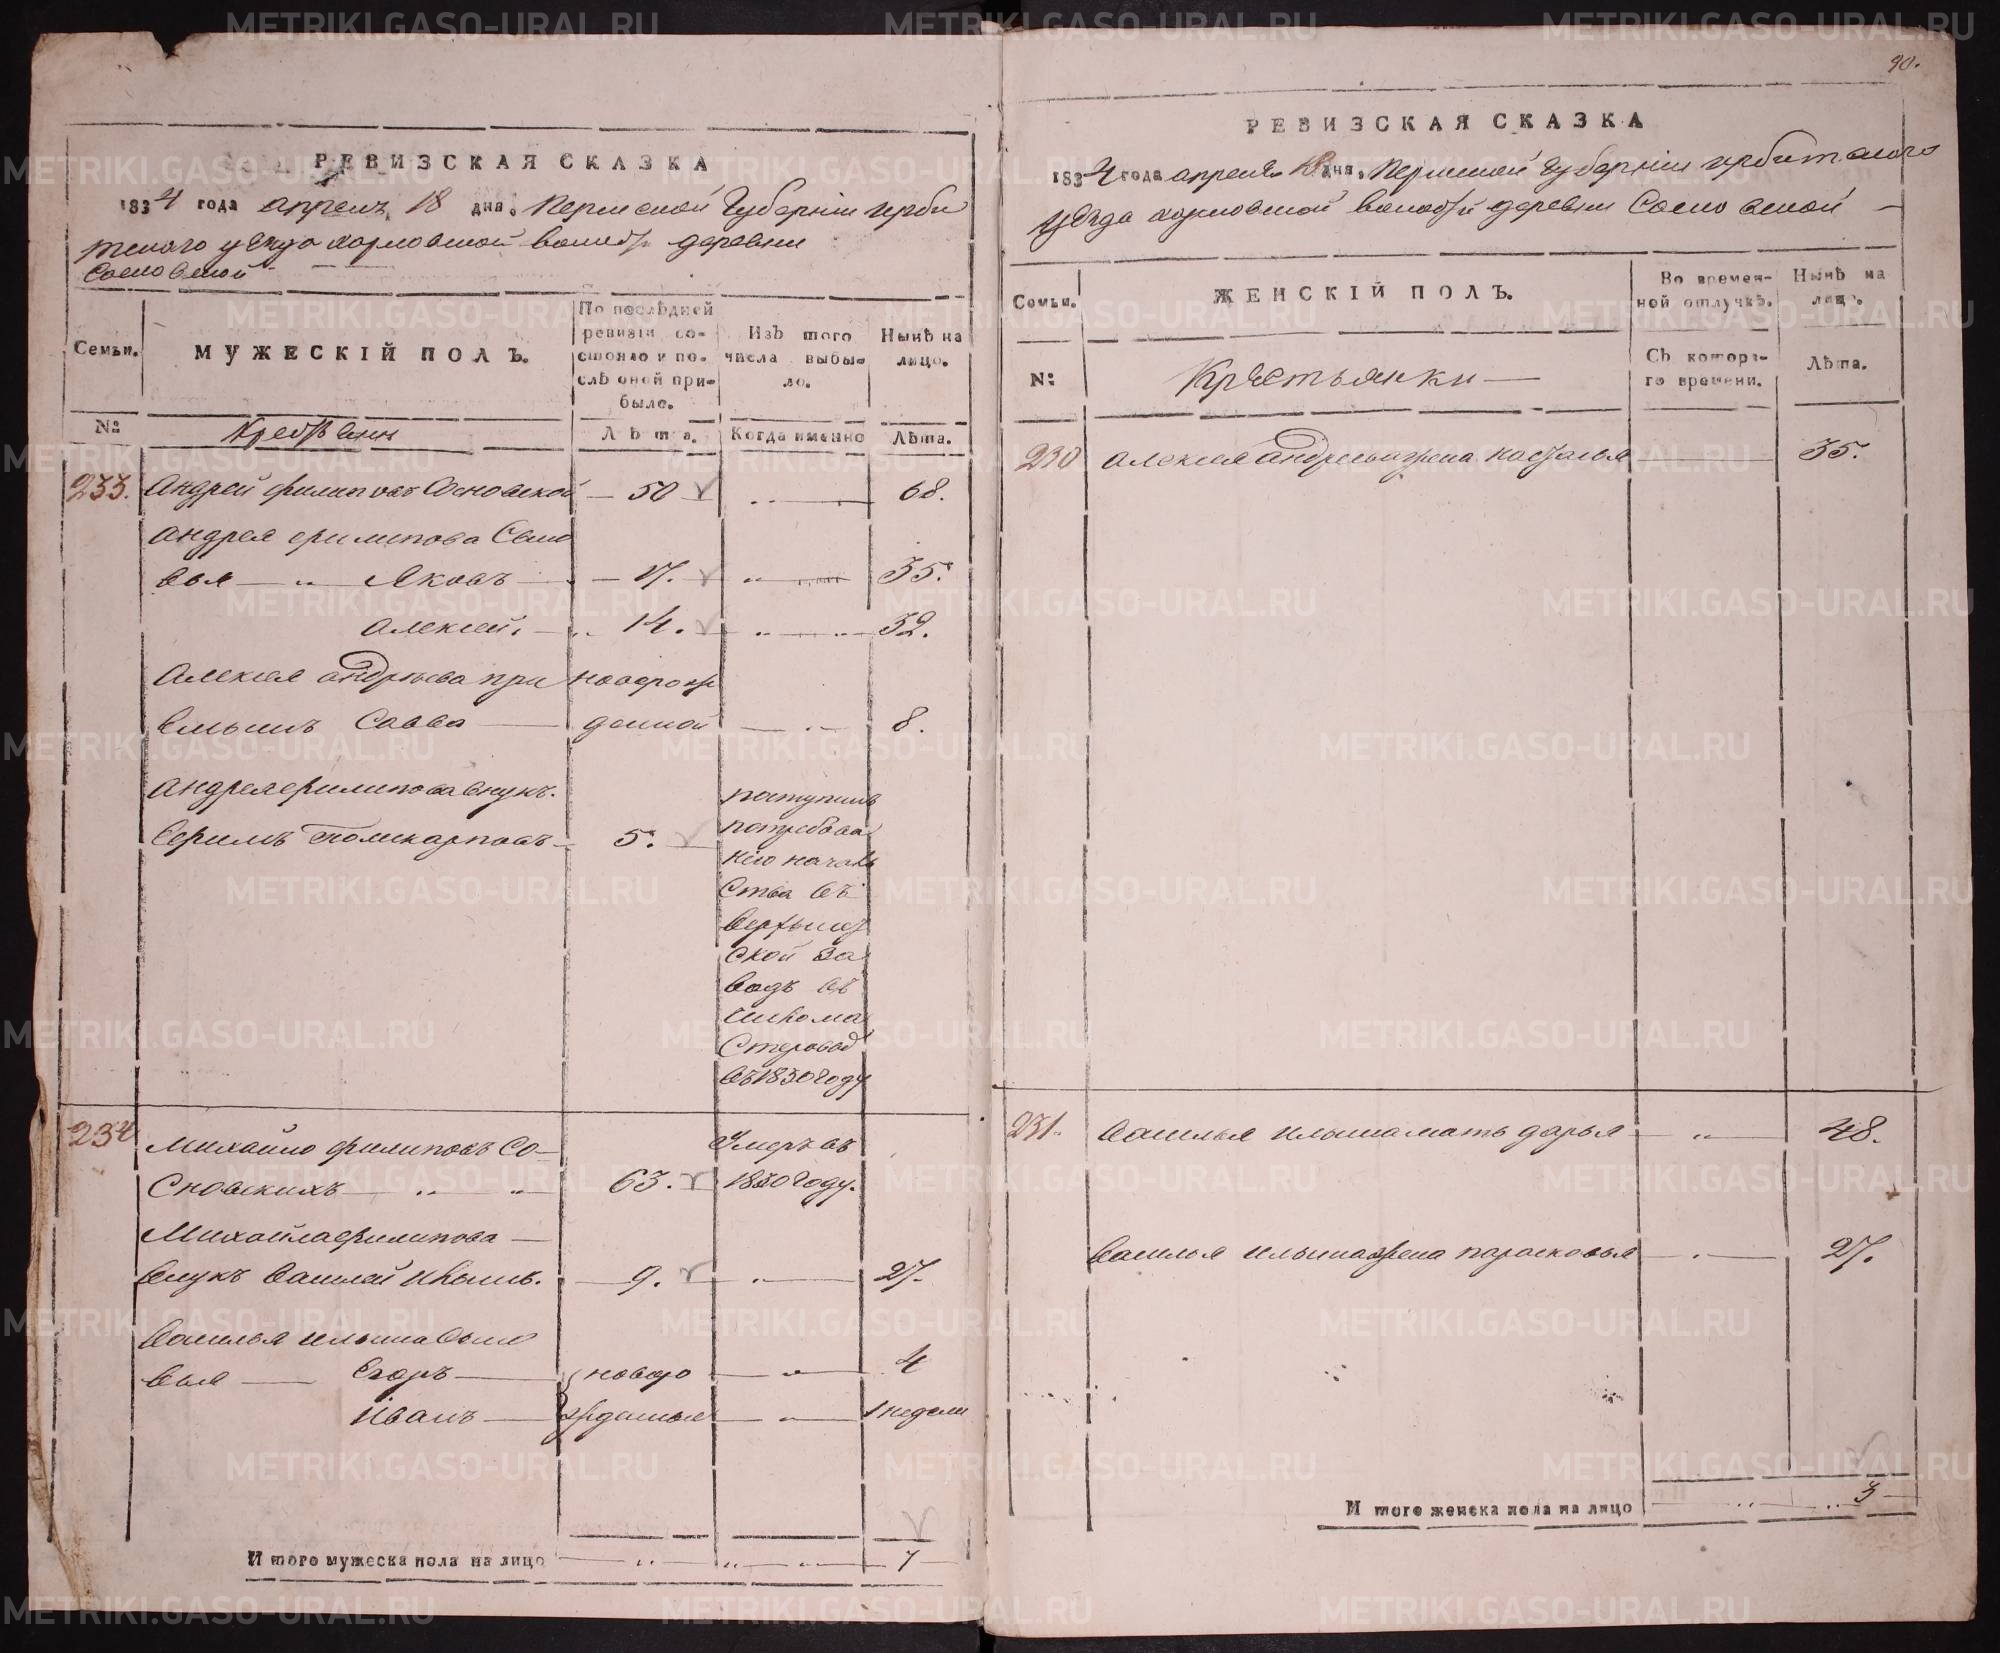 РЕВИЗСКАЯ СКАЗКА
1834 года апреля 18 дня, Пермской Губернiи ирби
тского уѣзда харловской волости деревни
Сосновской
Семьи.
МУЖЕСКIЙ ПОЛЪ.
По послѣдней ревизiи состояло и послѣ оной прибыло.
Изъ того числа выбыло.
Нынѣ на лицо.
№
Крестьяне
Лѣта.
Когда именно
Лѣта.
233. Андрей филиповъ Сосновской — 50 68.
андрея филипова Сыно
вья — „ Яковъ — 17. „ 35.
алексей. — 14. „ — „ 32.
алексея андрѣева при новорож
емышъ Савва — денной — „ — 8.
андрея филипова внукъ.
Поликарповъ 5.
поступилъ
потребова
нiю началь
ства въ
ской за
водъ въ
въ 1830 году
234 михайло филиповъ Со—
сновскихъ — „ „ 63. умеръ въ 1830 году.
Михайла филипова —
внукъ Василей Ильинъ. — 9. „ — 27.
василья ильина сыно
вья — Егоръ — новоро — „ — 4
Иванъ — жденные — „ — 1 недели
Итого мужеска пола на лицо „ „ „ 7
90.
РЕВИЗСКАЯ СКАЗКА
1834 года апреля 18 дня, Пермской Губернiи ирбитского
уѣзда харловской волости деревни Сосновской —
Семьи.
ЖЕНСКIЙ ПОЛЪ.
Во временной отлучкѣ.
Нынѣ на лицо.
№
Крестьянки —
Съ которого времени.
Лѣта.
230 алексея андреева жена настасья — 35.
231. василья ильина мать дарья — „ — 48.
василья ильина жена парасковья — „ — 27.
Итого женска пола на лицо „ „ 3
METRIKI.GASO-URAL.RU